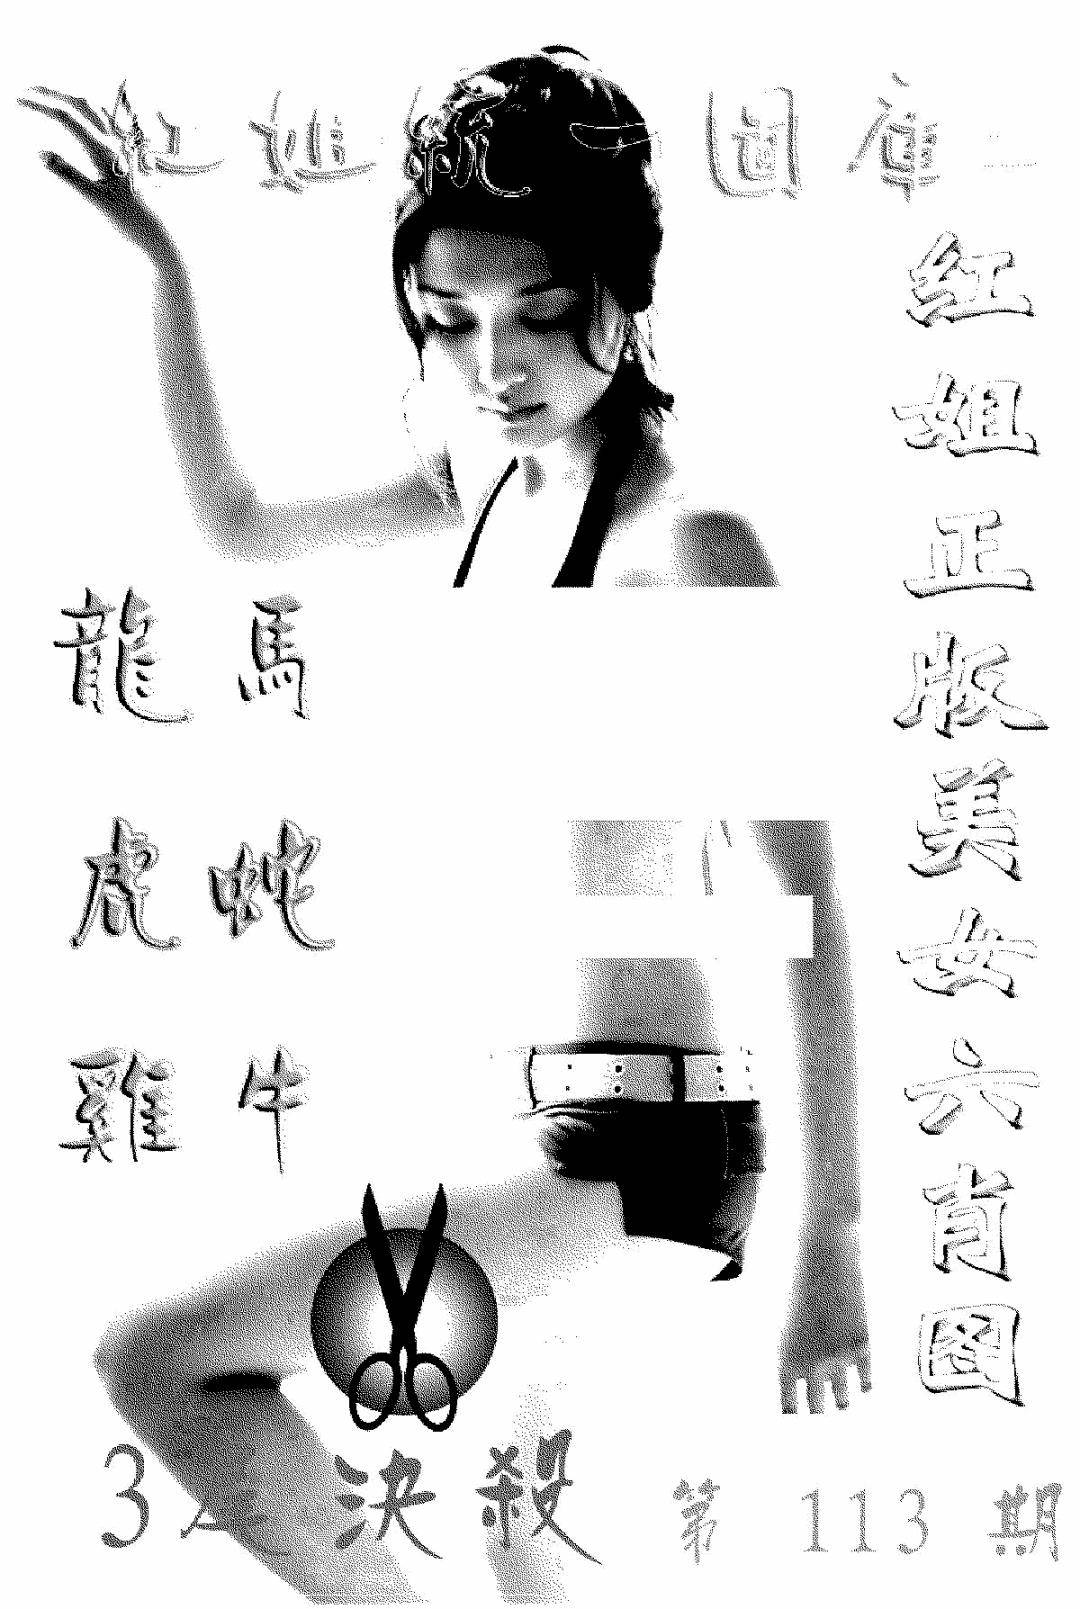 紅姐統一圖庫
紅姐正版美女六肖圖
龍馬
虎蛇
雞牛
3 決殺
第113期